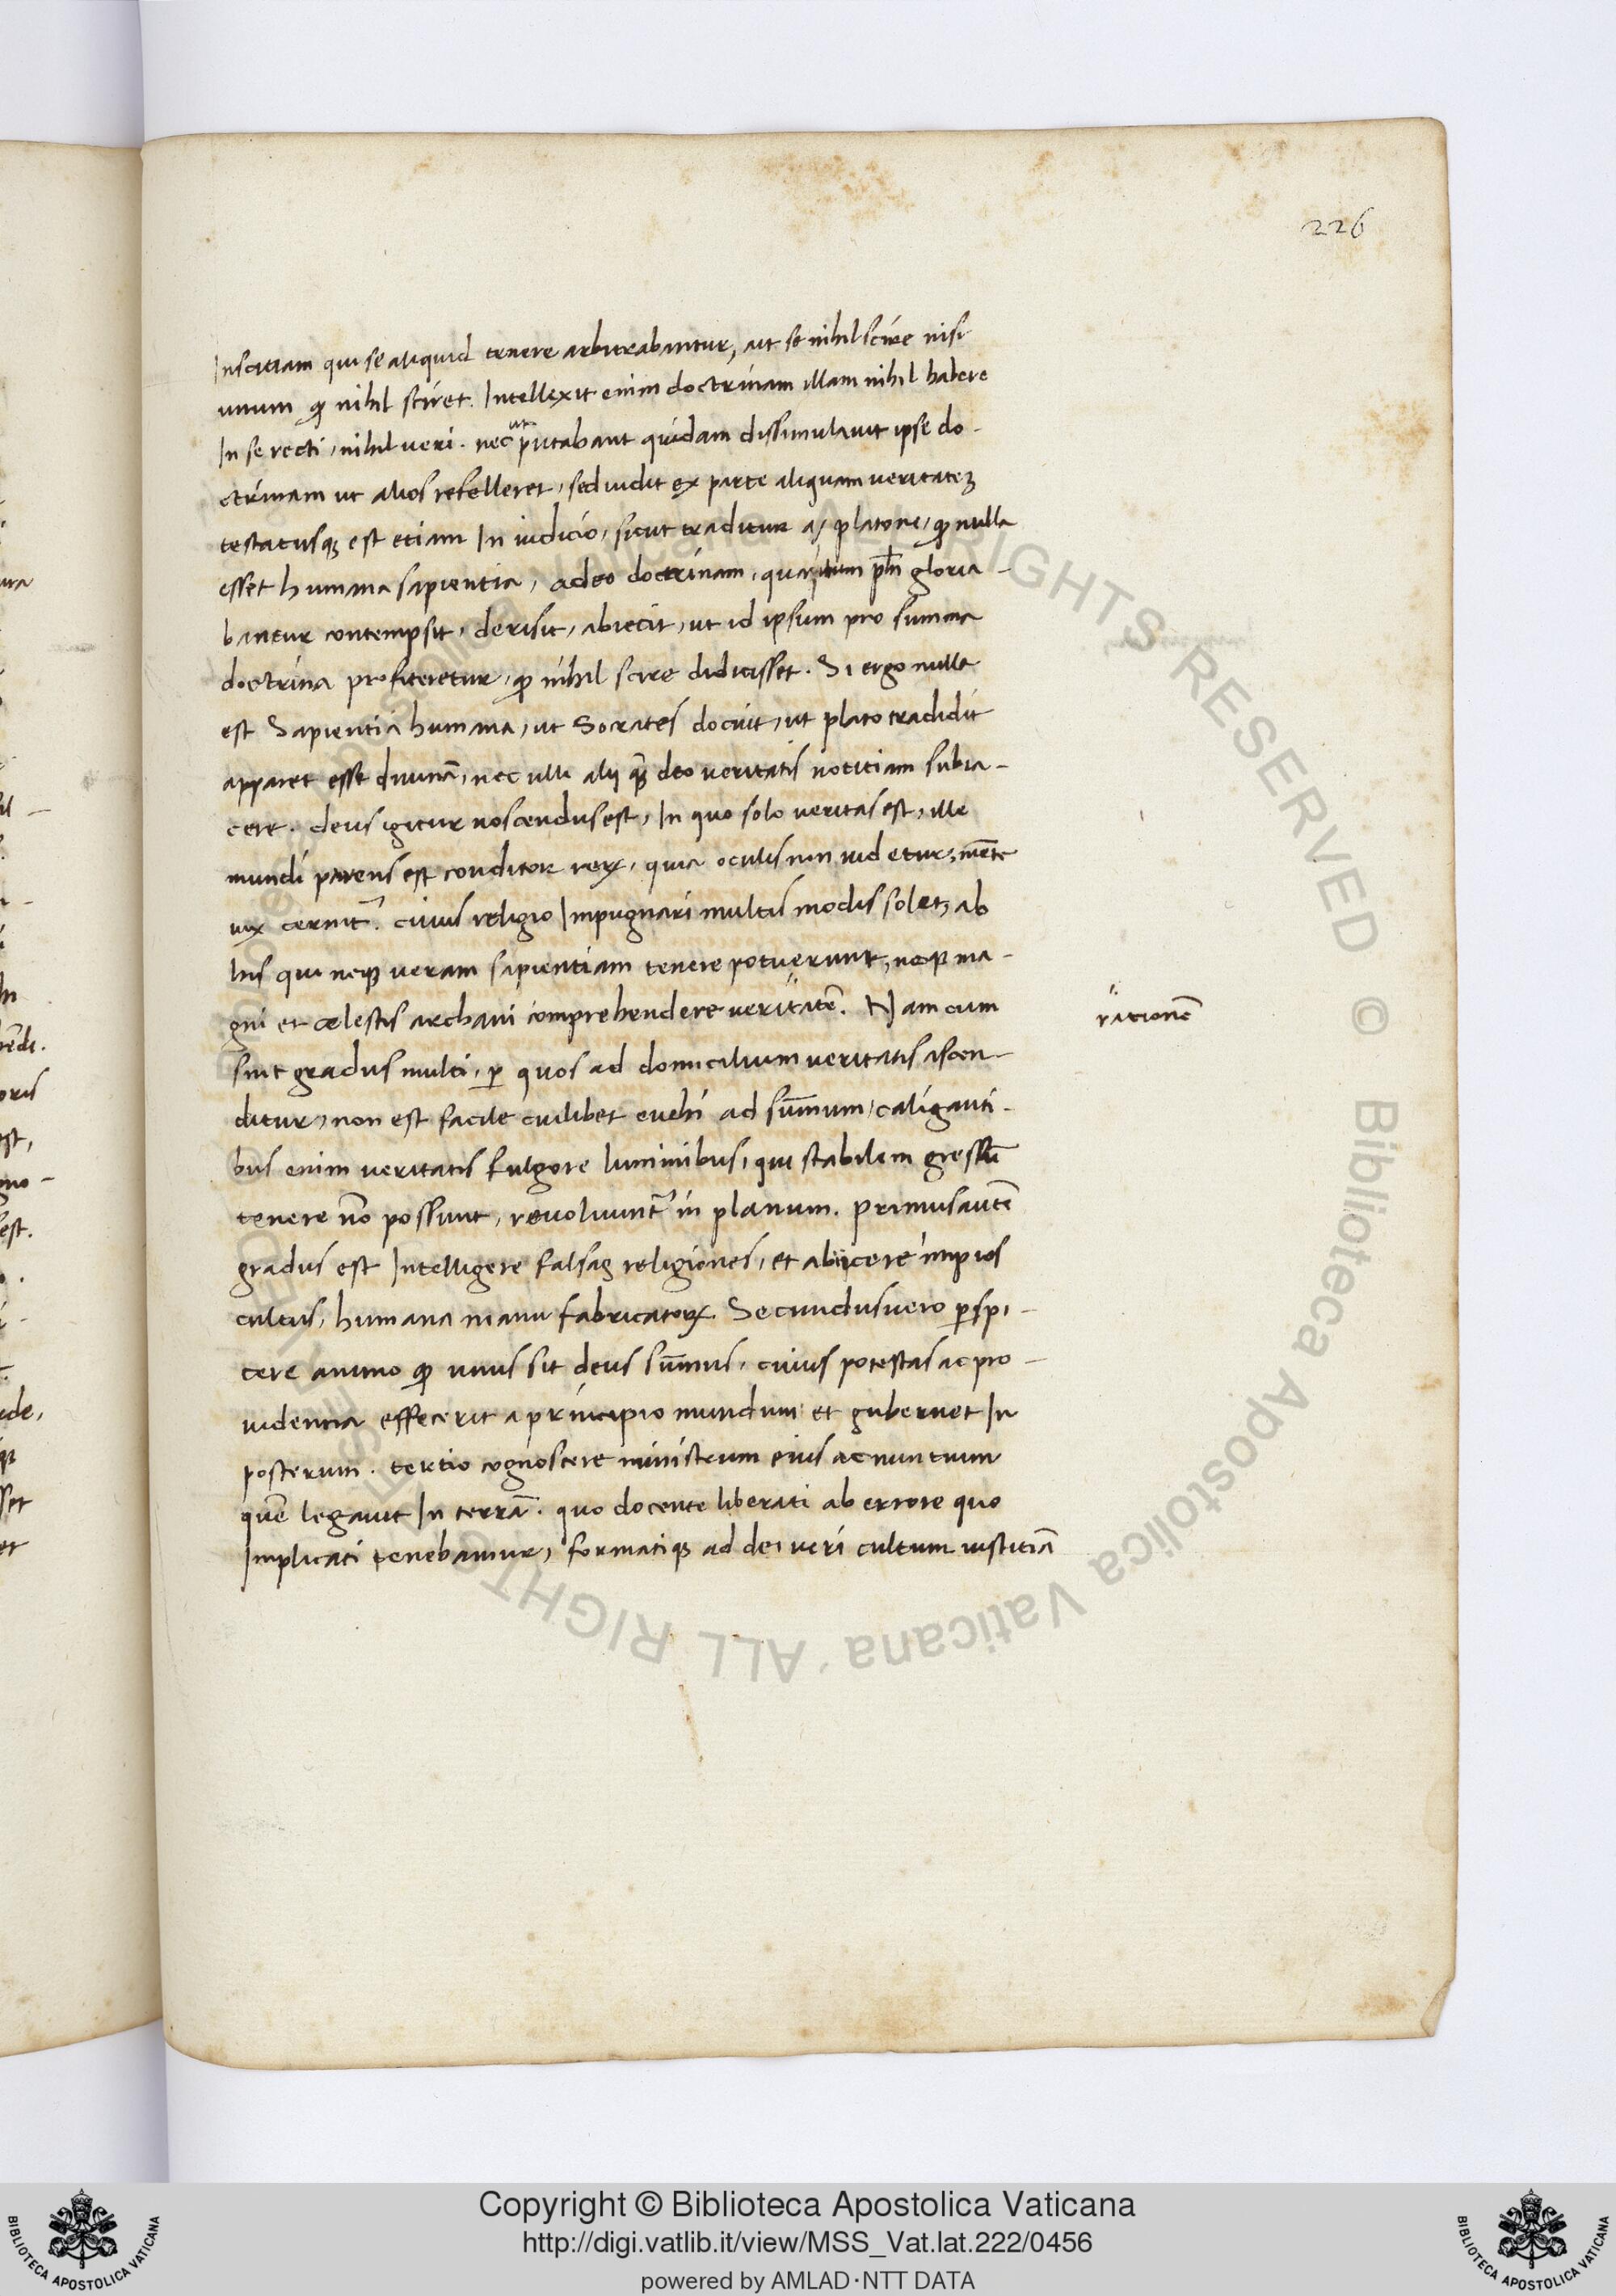 226
Inscitiam qui se aliquid tenere arbitrabantur, ait se nihil scire nisi
unum ꝙ nihil sciret. Intellexit enim doctrinam illam nihil habere
In se recti, nihil veri. nec ut putabant quidam dissimulauit ipse do-
ctrinam ut alios refelleret, sed uidit ex parte aliquam veritateꝫ
testatusqꝫ est etiam In iudicio, sicut traditur a/ platone, ꝙ nulla
esset humana sapientia, adeo doctrinam, qua pħi gloria-
bantur contempsit, derisit, abiecit, ut id ipsum pro summa
doctrina profiteretur, ꝙ nihil scire didicisset. Si ergo nulla
est Sapientia humana, ut Socrates docuit, ut plato tradidit
apparet esse diuinā, nec ulli alij qꝫ̄ deo veritatis notitiam subia-
cere. deus igitur noscendus est, In quo solo veritas est, ille
mundi parens est conditor reꝝ, quia oculis non uidetur, mēte
uix cernit᷑. cuius religio Impugnari multis modis solet, ab
his qui neqꝫ veram sapientiam tenere potuerunt, neqꝫ ma-
gni et cælestis archani comprehendere ueritatē. Nam cum
rationē
sint gradus multi, ꝑ quos ad domicilium veritatis ascen-
ditur, non est facile cuilibet euehi ad sūmum, caliganti-
bus enim veritatis fulgore luminibus, qui stabilem gressū
tenere nō possunt, reuoluunt᷑ in planum. Primus autē
gradus est Intelligere falsas religiones, et abiicere impios
cultus, humana manu fabricatoꝝ. Secundus uero ꝑspi-
cere animo ꝙ unus sit deus sūmus, cuius potestas ac pro-
uidentia effecerit a principio mundum et gubernet In
posterum. tertio cognoscere ministrum eius ac nuntium
quē legauit In terrā. quo docente liberati ab errore quo
Implicati tenebamur, formatiqꝫ ad dei veri cultum iustitiā
Copyright © Biblioteca Apostolica Vaticana
http://digi.vatlib.it/view/MSS_Vat.lat.222/0456
powered by AMLAD·NTT DATA
BIBLIOTECA APOSTOLICA VATICANA
BIBLIOTECA APOSTOLICA VATICANA